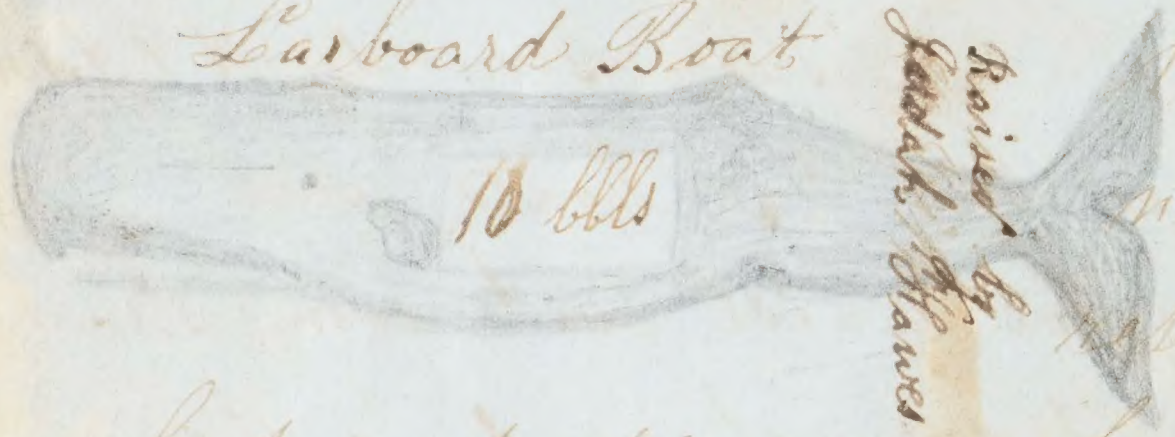 Larboard Boat
10 bbls
Raised by
Judah Hawes